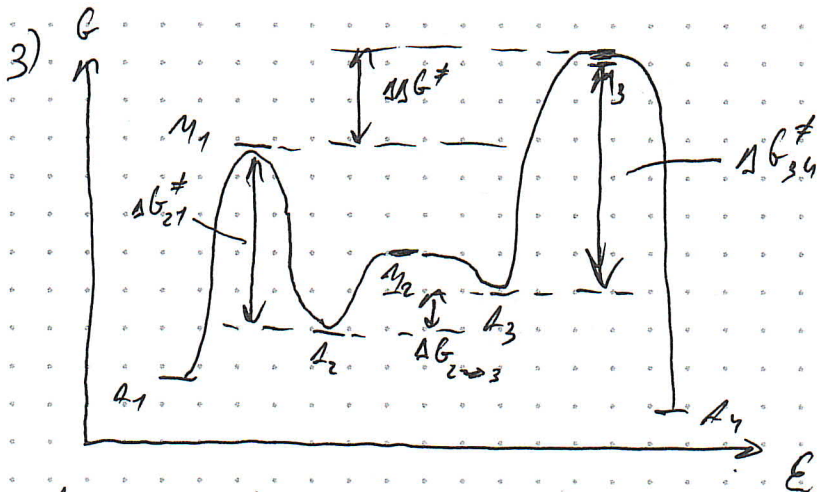 G
3)
ΔΔG≠
M3
M1
ΔG≠34
ΔG≠21
M2
A3
A2
ΔG2→3
A1
A4
ξ